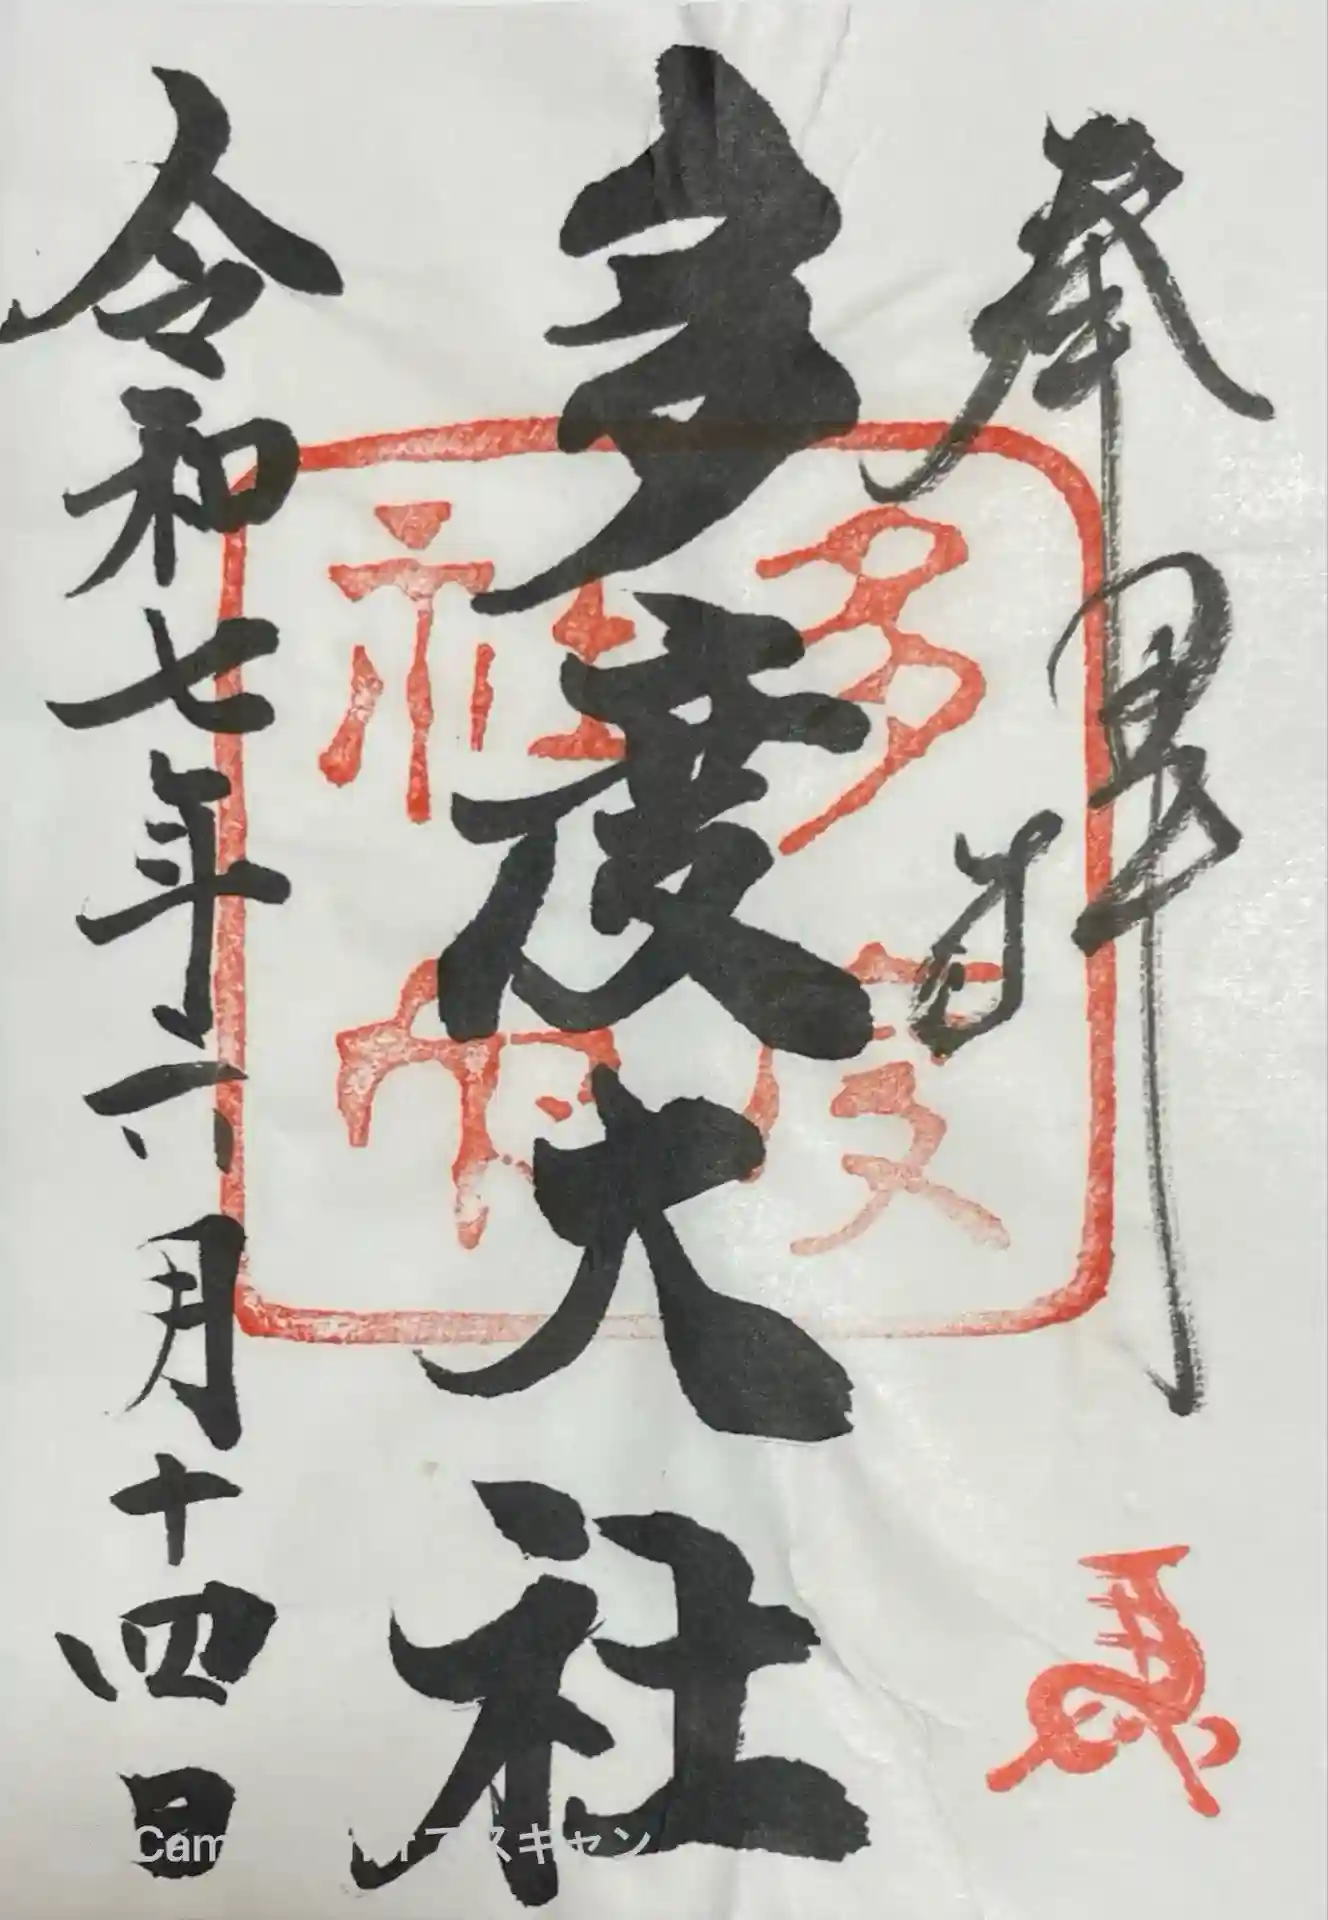 奉拝
多度大社
令和七年六月十四日
多度
社印
CamScanner でスキャン